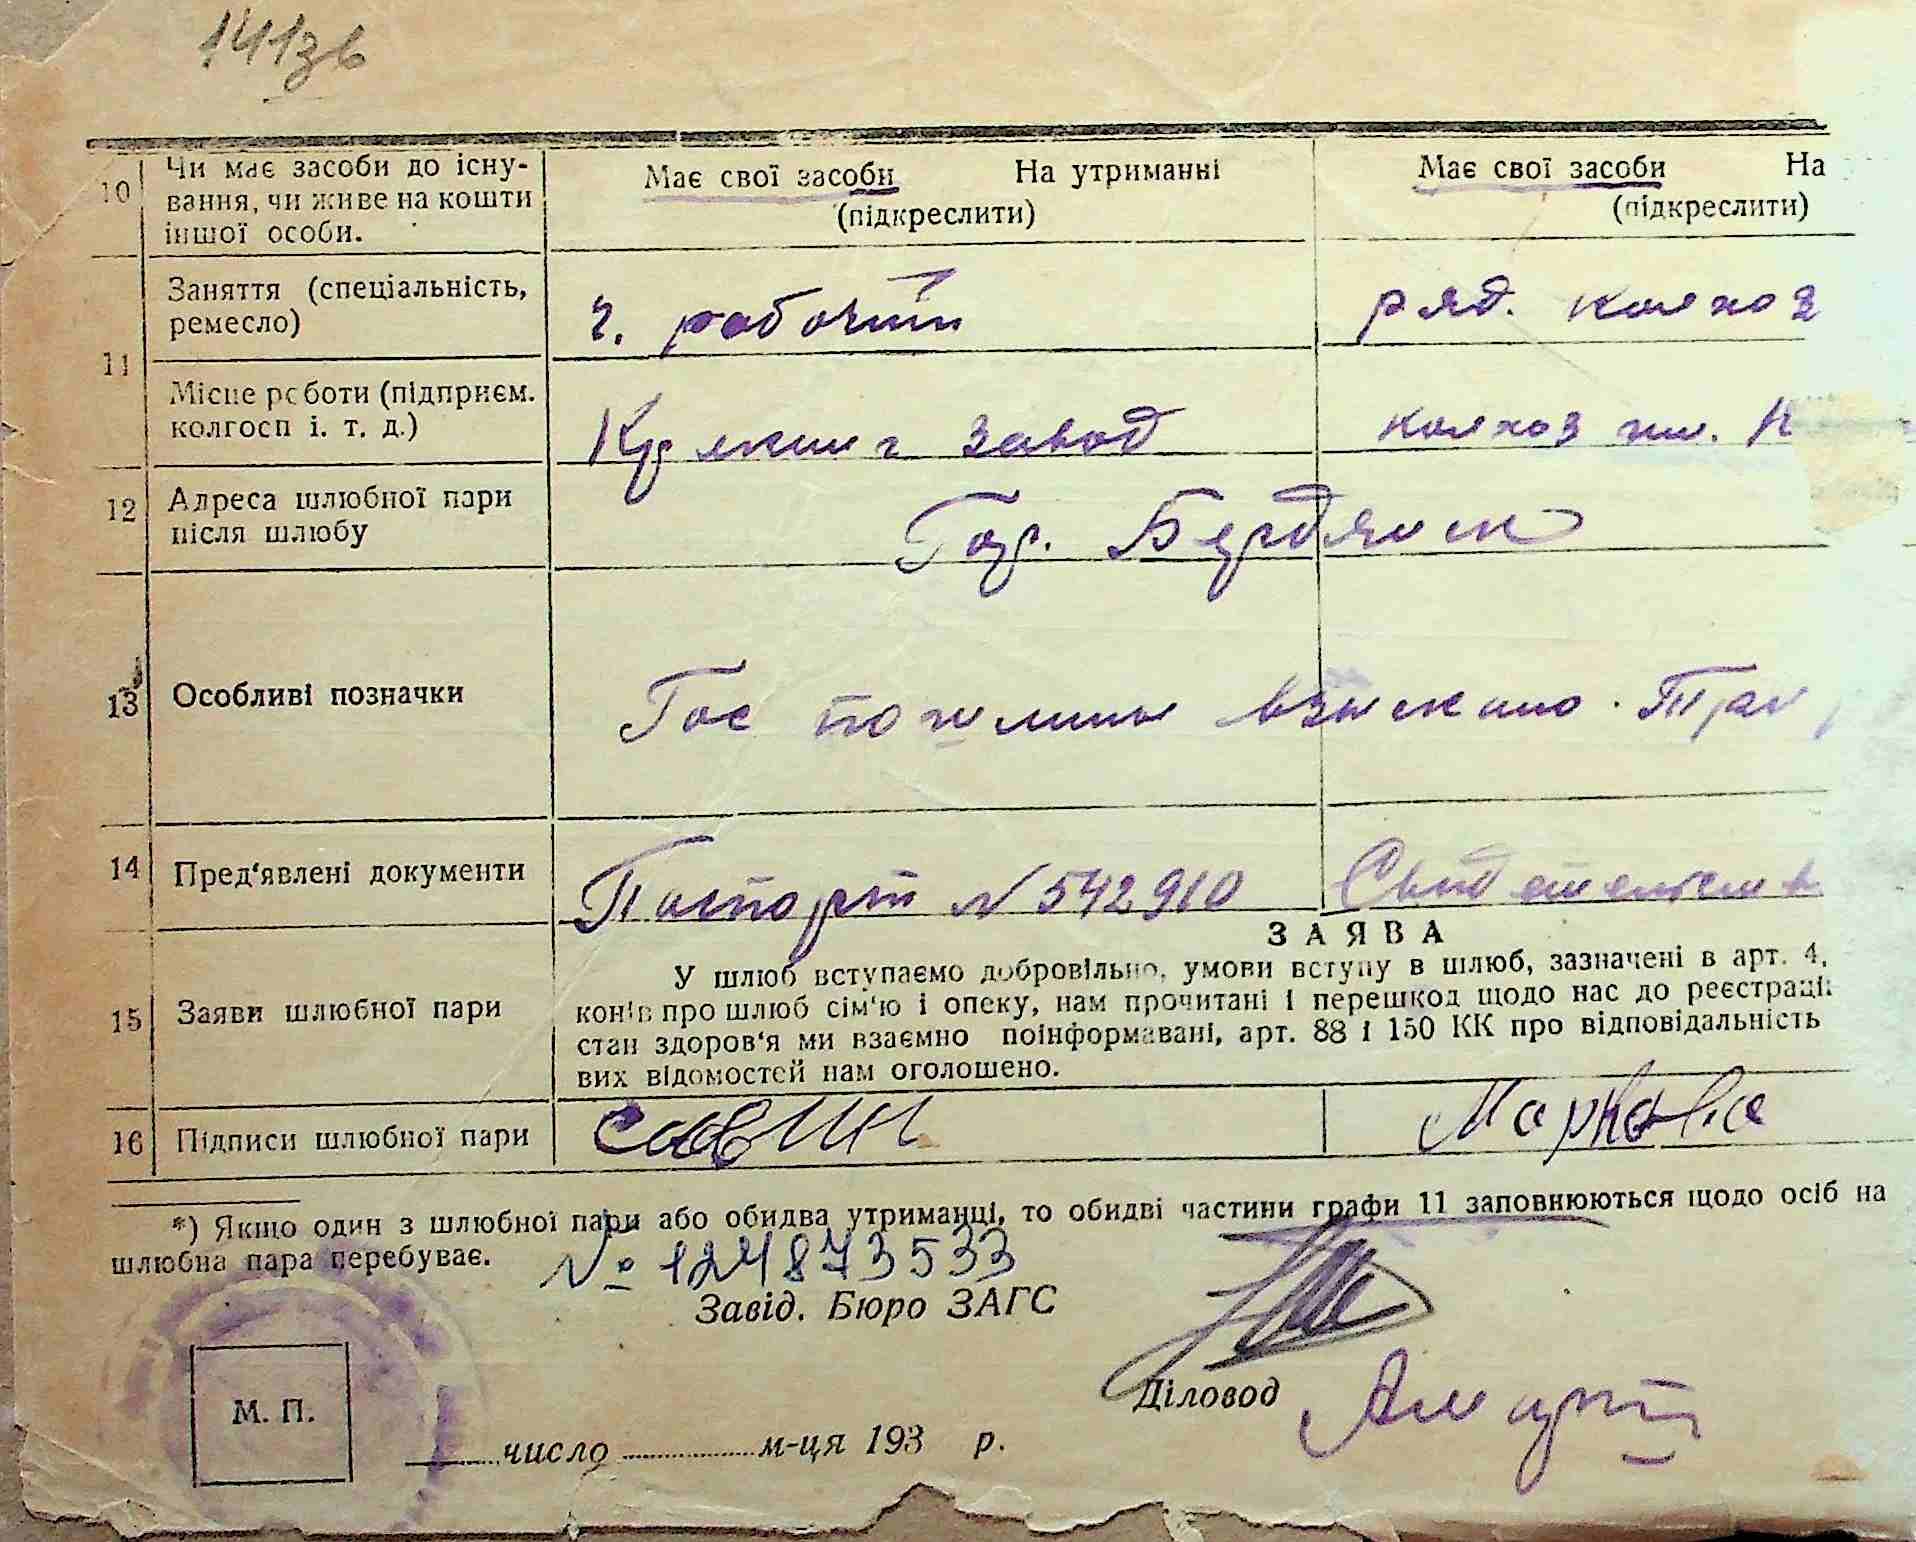 141зв
10 Чи має засоби до існу-
вання, чи живе на кошти
іншої особи.
Має свої засоби На утриманні
(підкреслити)
Має свої засоби На
(підкреслити)
11 Заняття (спеціальність,
ремесло)
ч. рабочий
ряд. колхоз
Місце роботи (підприєм.
колгосп і. т. д.)
завод
колхоз им. К
12 Адреса шлюбної пари
після шлюбу
Гор. Бердянск
13 Особливі позначки
Гос пошлины взыскано. Три
14 Пред'явлені документи
Паспорт № 542910
Свидетельств
ЗАЯВА
15 Заяви шлюбної пари
У шлюб вступаємо добровільно, умови вступу в шлюб, зазначені в арт. 4,
конів про шлюб сім'ю і опеку, нам прочитані і перешкод щодо нас до реєстрації
стан здоров'я ми взаємно поінформавані, арт. 88 і 150 КК про відповідальність
вих відомостей нам оголошено.
16 Підписи шлюбної пари
Савин
Маркова
*) Якщо один з шлюбної пари або обидва утриманці, то обидві частини графи 11 заповнюються щодо осіб на
шлюбна пара перебуває.
№ 124873533
Завід. Бюро ЗАГС
Діловод
М. П.
число м-ця 193 р.